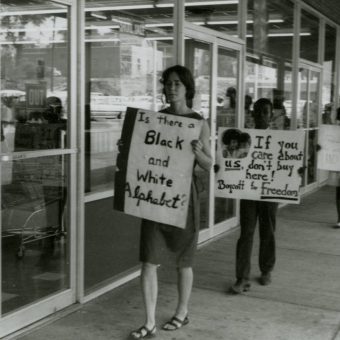 OUT
Is There a
Black
and
White
Alphabet?
If you
care about
us, don't buy
here!
Boycott for Freedom